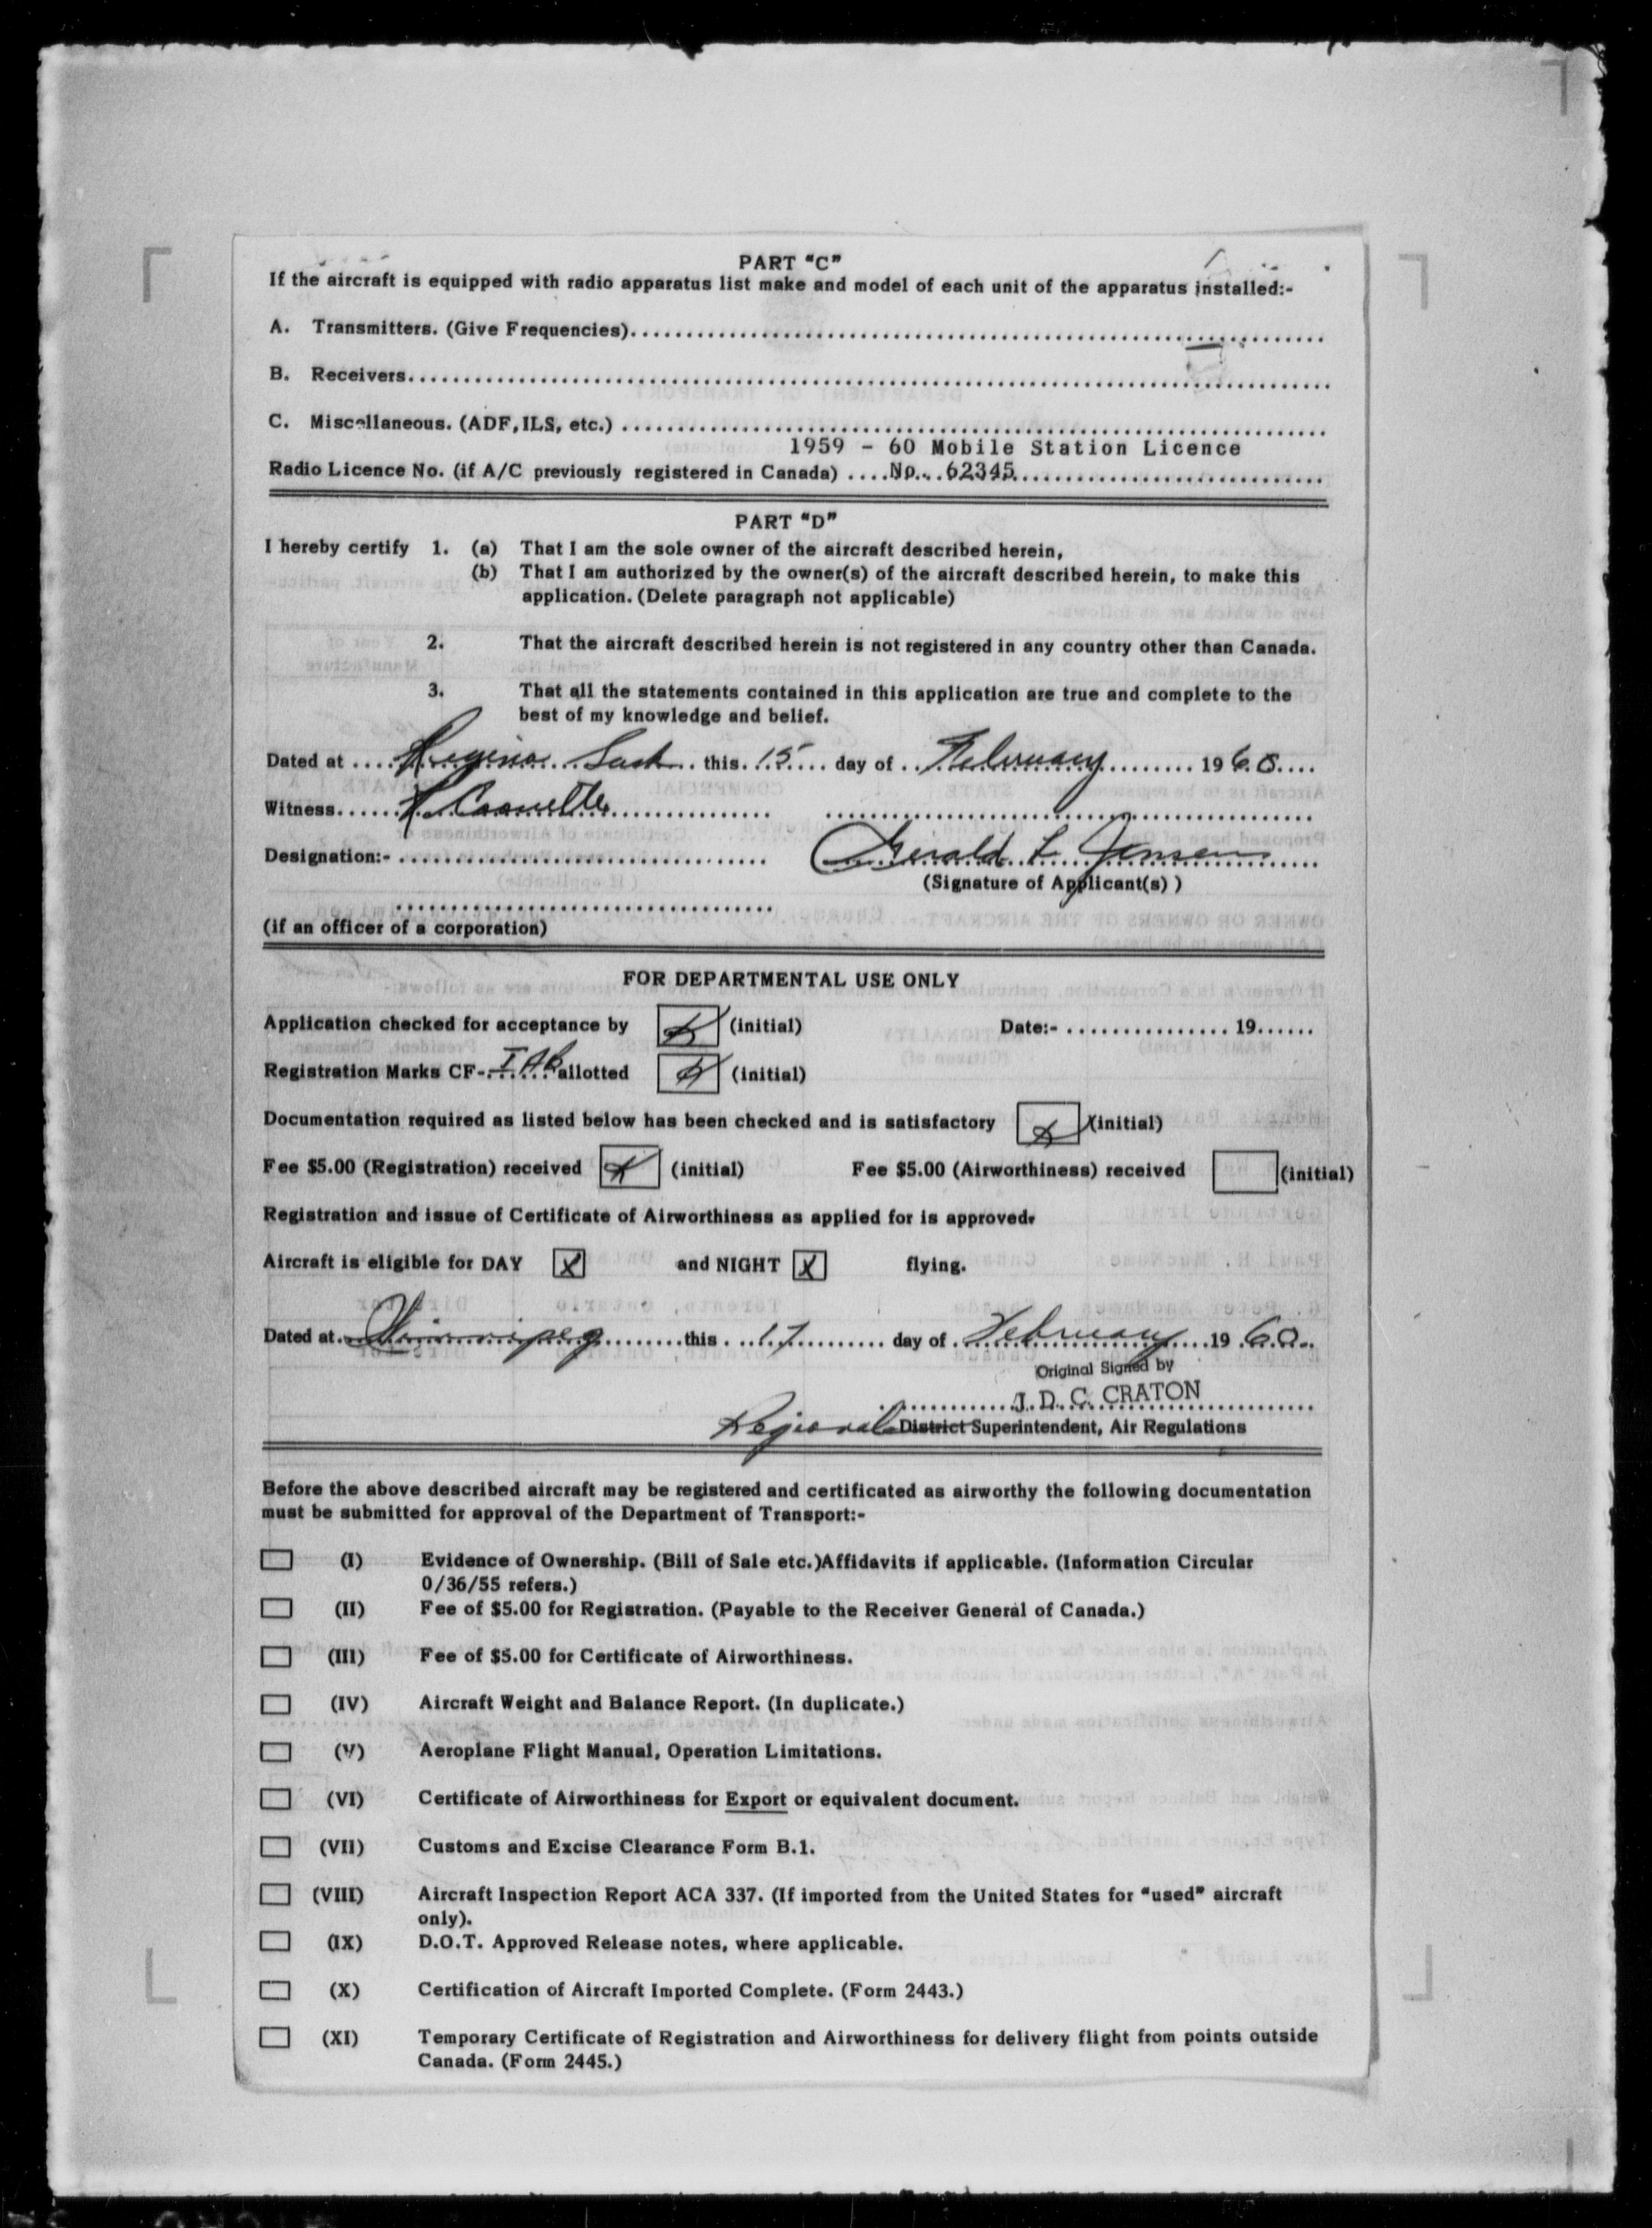 PART "C"
If the aircraft is equipped with radio apparatus list make and model of each unit of the apparatus installed:-
A. Transmitters. (Give Frequencies)
B. Receivers
C. Miscellaneous. (ADF, ILS, etc.)
1959 - 60 Mobile Station Licence
Radio Licence No. (if A/C previously registered in Canada) No. 62345
PART "D"
I hereby certify 1. (a) That I am the sole owner of the aircraft described herein,
(b) That I am authorized by the owner(s) of the aircraft described herein, to make this
application. (Delete paragraph not applicable)
2. That the aircraft described herein is not registered in any country other than Canada.
3. That all the statements contained in this application are true and complete to the
best of my knowledge and belief.
Dated at Regina Sask this 15 day of February 1960
Witness
Designation:- Gerald L Jensen
(Signature of Applicant(s) )
(if an officer of a corporation)
FOR DEPARTMENTAL USE ONLY
Application checked for acceptance by (initial) Date:- 19
Registration Marks CF- allotted (initial)
Documentation required as listed below has been checked and is satisfactory (initial)
Fee $5.00 (Registration) received (initial) Fee $5.00 (Airworthiness) received (initial)
Registration and issue of Certificate of Airworthiness as applied for is approved.
Aircraft is eligible for DAY X and NIGHT X flying.
Dated at Winnipeg this 17 day of February 1960
Original Signed by
J. D. C. CRATON
Regional District Superintendent, Air Regulations
Before the above described aircraft may be registered and certificated as airworthy the following documentation
must be submitted for approval of the Department of Transport:-
(I) Evidence of Ownership. (Bill of Sale etc.)Affidavits if applicable. (Information Circular
0/36/55 refers.)
(II) Fee of $5.00 for Registration. (Payable to the Receiver General of Canada.)
(III) Fee of $5.00 for Certificate of Airworthiness.
(IV) Aircraft Weight and Balance Report. (In duplicate.)
(V) Aeroplane Flight Manual, Operation Limitations.
(VI) Certificate of Airworthiness for Export or equivalent document.
(VII) Customs and Excise Clearance Form B.1.
(VIII) Aircraft Inspection Report ACA 337. (If imported from the United States for "used" aircraft
only).
(IX) D.O.T. Approved Release notes, where applicable.
(X) Certification of Aircraft Imported Complete. (Form 2443.)
(XI) Temporary Certificate of Registration and Airworthiness for delivery flight from points outside
Canada. (Form 2445.)